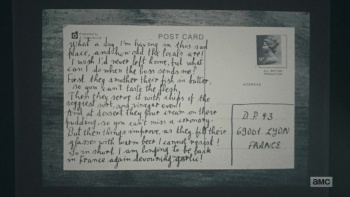 POST CARD
What a day, I'm having in this sad
place, and how odd the locals are!
I wish I'd never left home, but what
can I do when the boss sends me?
First they smother their fish in batter,
so you can't taste the flesh,
Then they serve it with chips of the
soggiest sort, and vinegar over!
And at dessert they pour cream on these
pudding, so you can't miss a coronary.
But then things improve, as they fill their
glasses with warm beer I cannot resist!
So in short I am longing to be back
in France again devouring garlic!
ADDRESS
D.P. 43
69001 LYON
FRANCE
amc